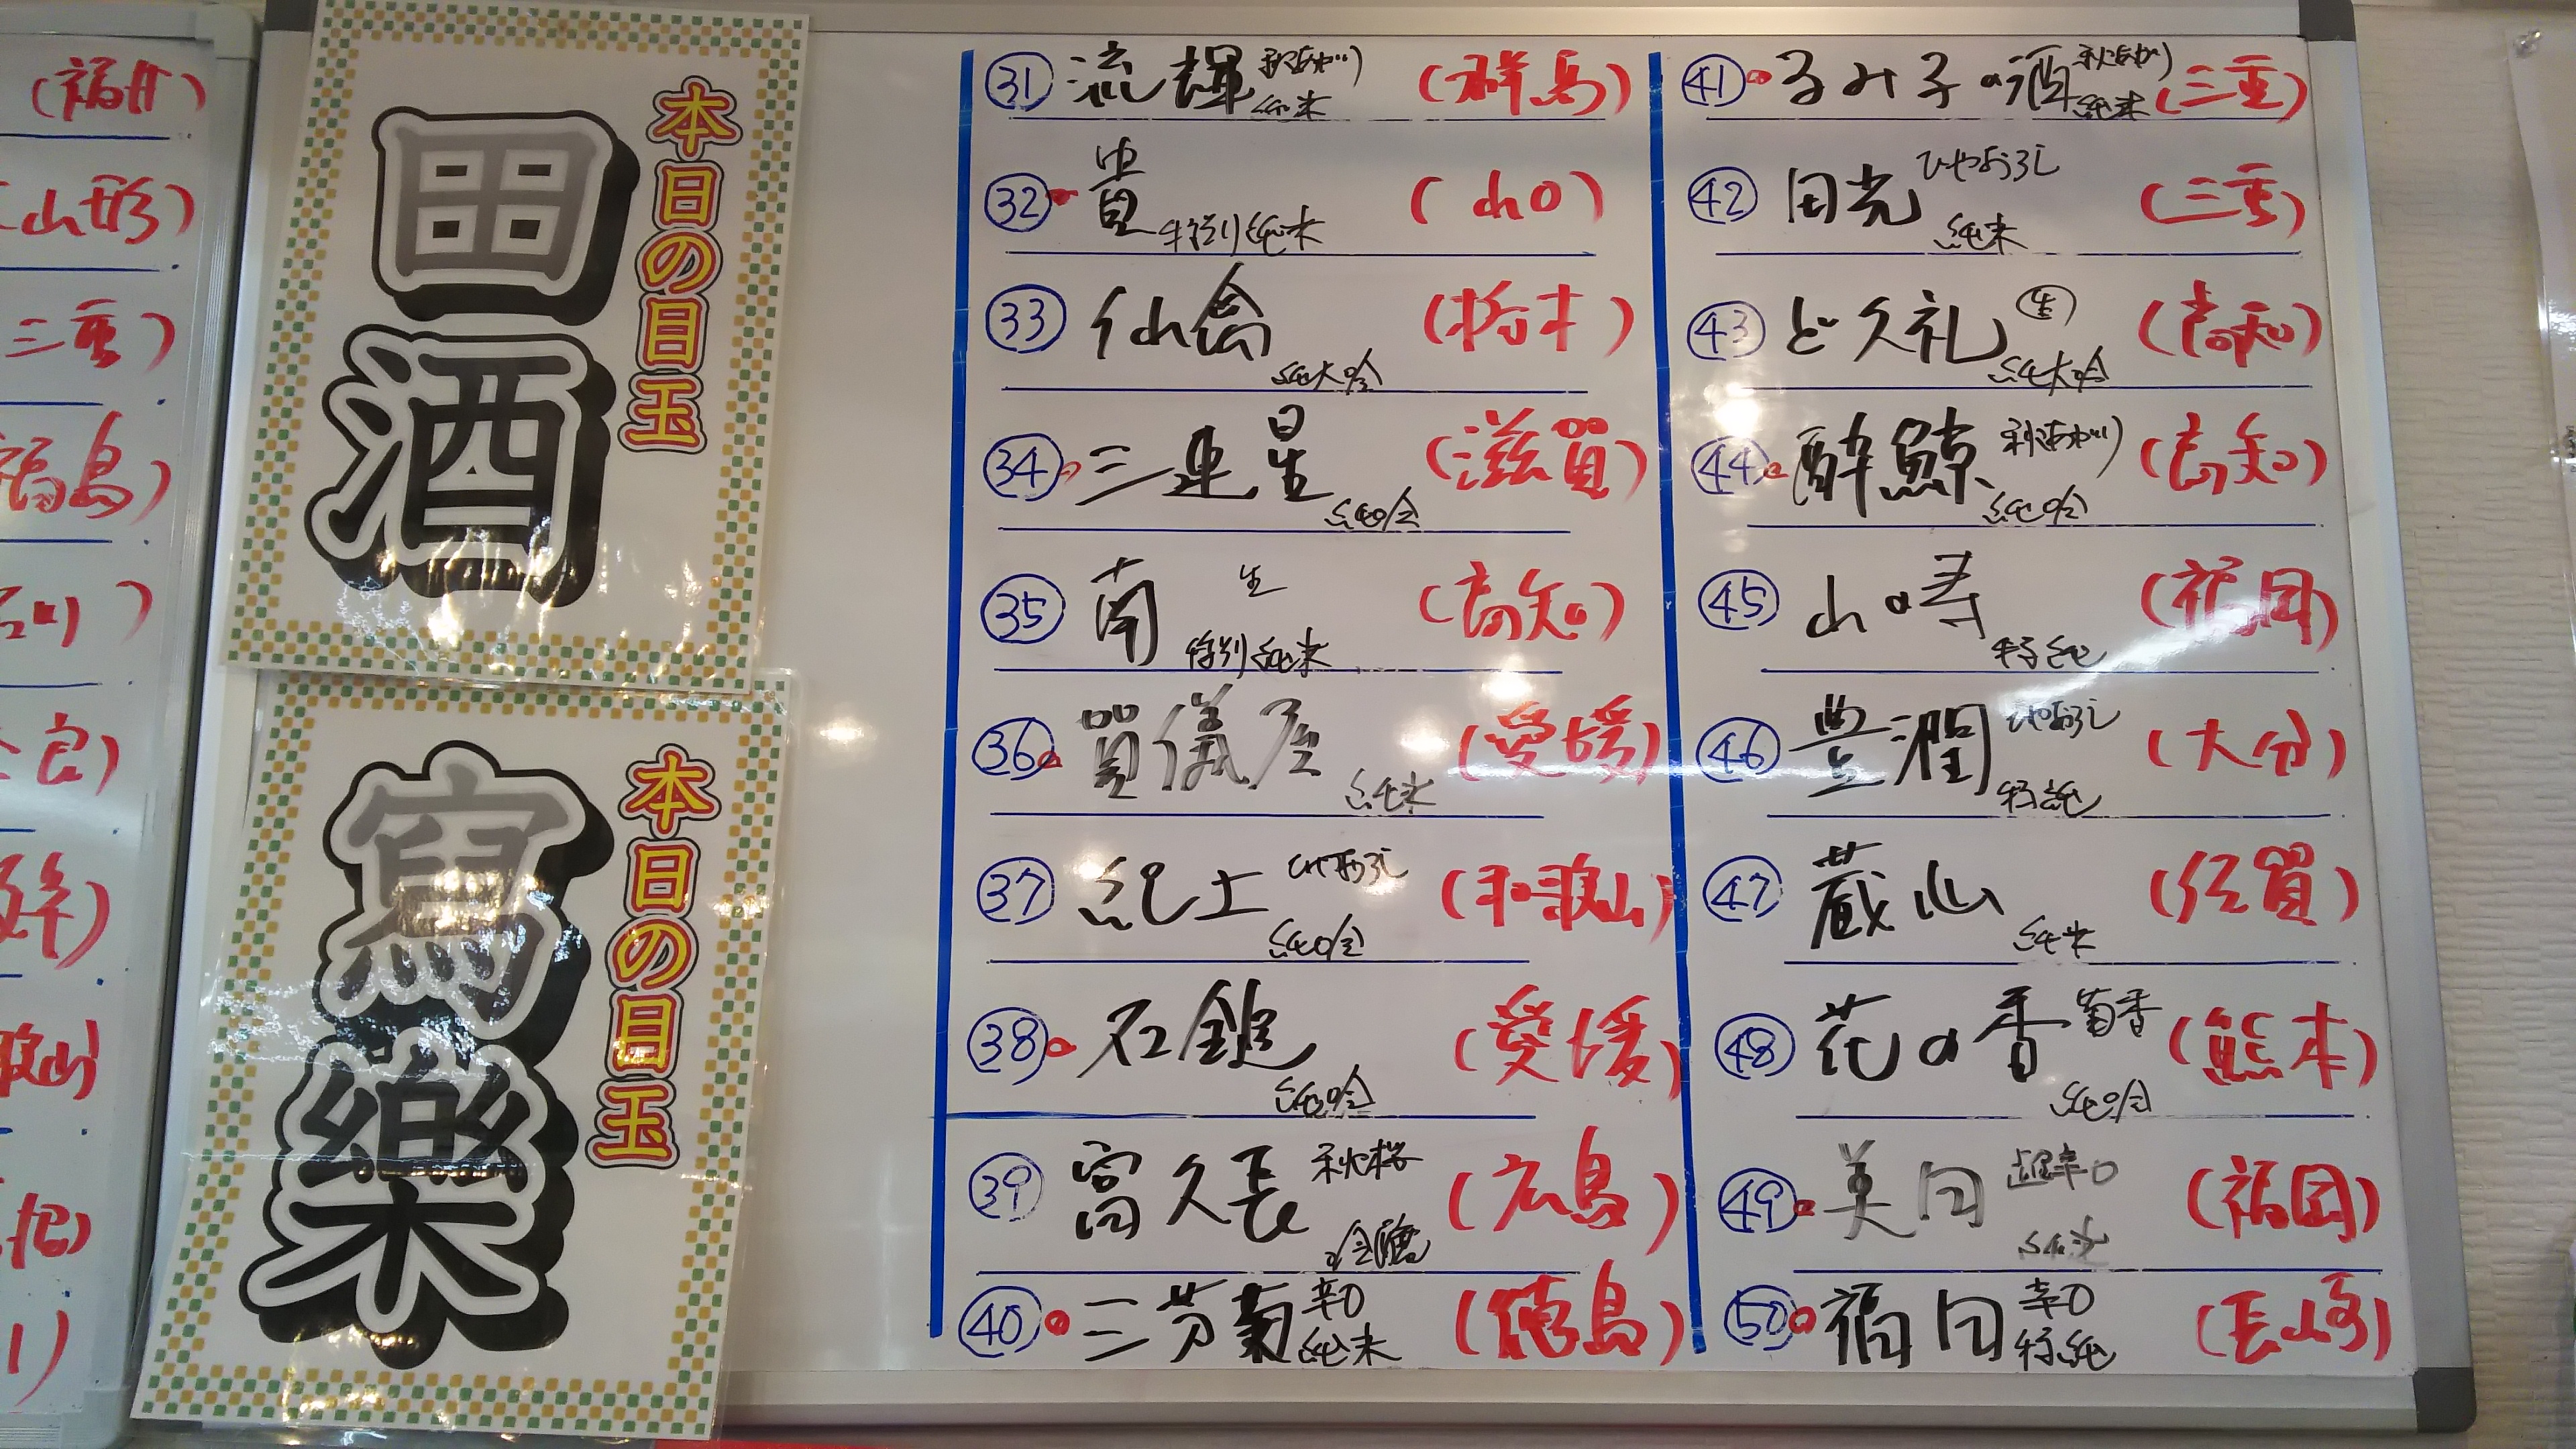 (福井)
山形)
三重)
福島)
石川)
良)
歌山)
本日の目玉
田酒
本日の目玉
寫樂
㉛ 流輝 秋あがり 純米 (群馬)
㉜ 貴 特別純米 (山口)
㉝ 仙禽 純大吟 (栃木)
㉞ 三連星 純吟 (滋賀)
㉟ 南 生 特別純米 (高知)
㊱ 賀儀屋 純米 (愛媛)
㊲ 紀土 ひやおろし 純吟 (和歌山)
㊳ 石鎚 純吟 (愛媛)
㊴ 富久長 秋桜 吟醸 (広島)
㊵ 三芳菊 辛口 純米 (徳島)
㊶ るみ子の酒 秋あがり 純米 (三重)
㊷ 田光 ひやおろし 純米 (三重)
㊸ どくれ 生 純大吟 (高知)
㊹ 酔鯨 秋あがり 純吟 (高知)
㊺ 山の寿 特純 (福岡)
㊻ 豊潤 ひやおろし 特純 (大分)
㊼ 蔵心 純米 (佐賀)
㊽ 花の香 菊香 純吟 (熊本)
㊾ 美田 超辛口 純米 (福岡)
㊿ 福田 辛口 特純 (長崎)